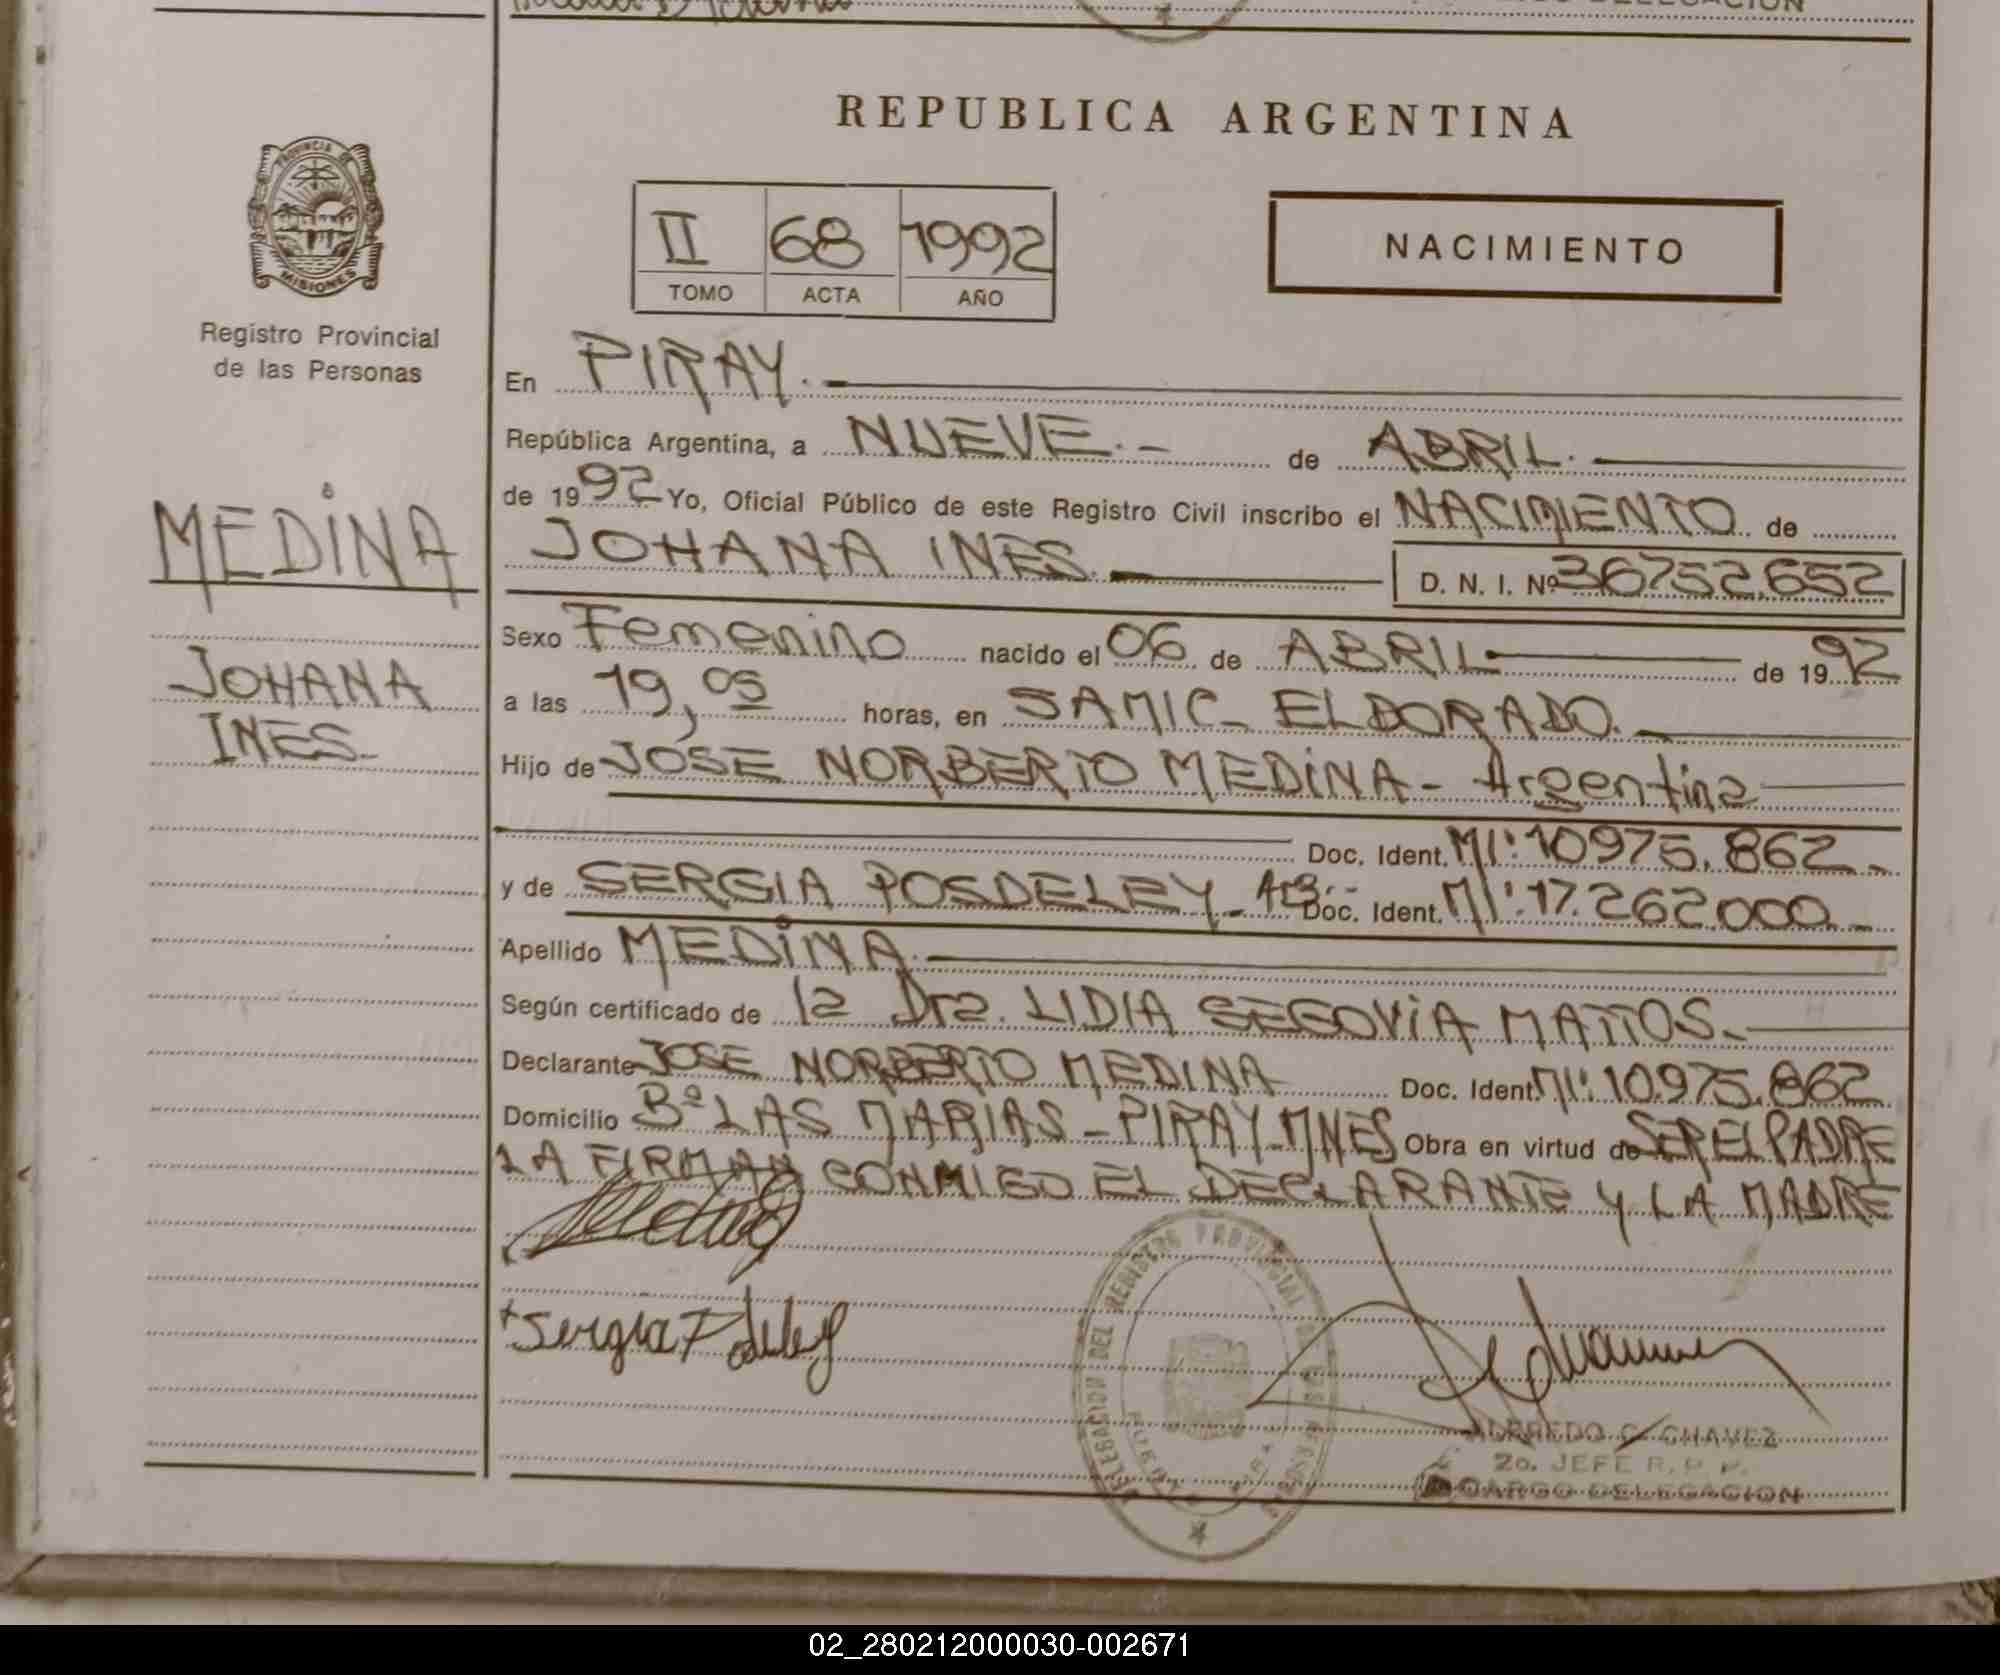 REPUBLICA ARGENTINA
PROVINCIA DE
MISIONES
Registro Provincial
de las Personas
II 68 1992
TOMO ACTA AÑO
NACIMIENTO
MEDINA
JOHANA
INES.-
En PIRAY.
República Argentina, a NUEVE.- de ABRIL.
de 1992 Yo, Oficial Público de este Registro Civil inscribo el NACIMIENTO de
JOHANA INES. D. N. I. Nº 36752.652
Sexo Femenino nacido el 06 de ABRIL de 1992
a las 19,05 horas, en SAMIC- ELDORADO.
Hijo de JOSE NORBERTO MEDINA- Argentina
Doc. Ident. MI: 10975.862.-
y de SERGIA POSDELEY- Arg.-- Doc. Ident. MI: 17.262.000.-
Apellido MEDINA.
Según certificado de la Dra. LIDIA SEGOVIA MATTOS.-
Declarante JOSE NORBERTO MEDINA Doc. Ident. MI: 10.975.862
Domicilio Bº LAS MARIAS - PIRAY-MNES Obra en virtud de SER EL PADRE
LA FIRMAN CONMIGO EL DECLARANTE Y LA MADRE
DELEGACION DEL REGISTRO PROVINCIAL DE LAS PERSONAS
ALFREDO C. CHAVEZ
2o. JEFE R. P. P.
A CARGO DELEGACION
02_280212000030-002671